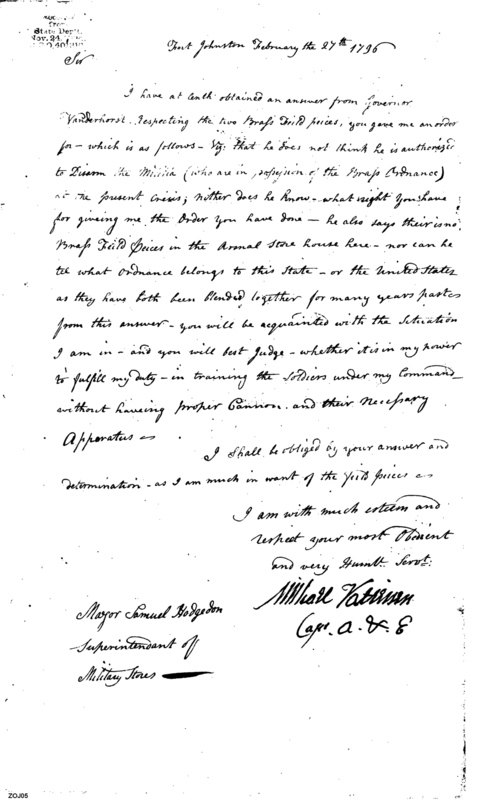 from
State Dept.
Nov. 24
Fort Johnston February the 27th 1796
Sir
I have at lenth obtained an answer from Governor
Vanderhorst. Respecting the two Brass Feild peices, you gave me an order
for - which is as follows - Viz: that he does not think he is authorized
to Disarm the Militia (who are in possession of the Brass Ordnance)
at the present Crisis; neither does he know - what right you have
for giveing me the Order you have done - he also says their is no
Brass Feild Peices in the Arsnal Store house here - nor can he
tel what Ordnance belongs to this State - or the United States
as they have both been blended together for many years past
from this answer - you will be acquainted with the Situation
I am in - and you will best Judge - whether it is in my power
to fulfill my duty - in training the Soldiers under my Command
without haveing proper Cannon. and their Necessary
Apparatus
I Shall be obliged by your answer and
determination - as I am much in want of the Feild peices
I am with much esteem and
respect your most Obedient
and very Humbl. Servt:
Michael Kalteisen
Capt. A. & E
Major Samuel Hodgedon
Superintendant of
Military Stores
ZOJ05